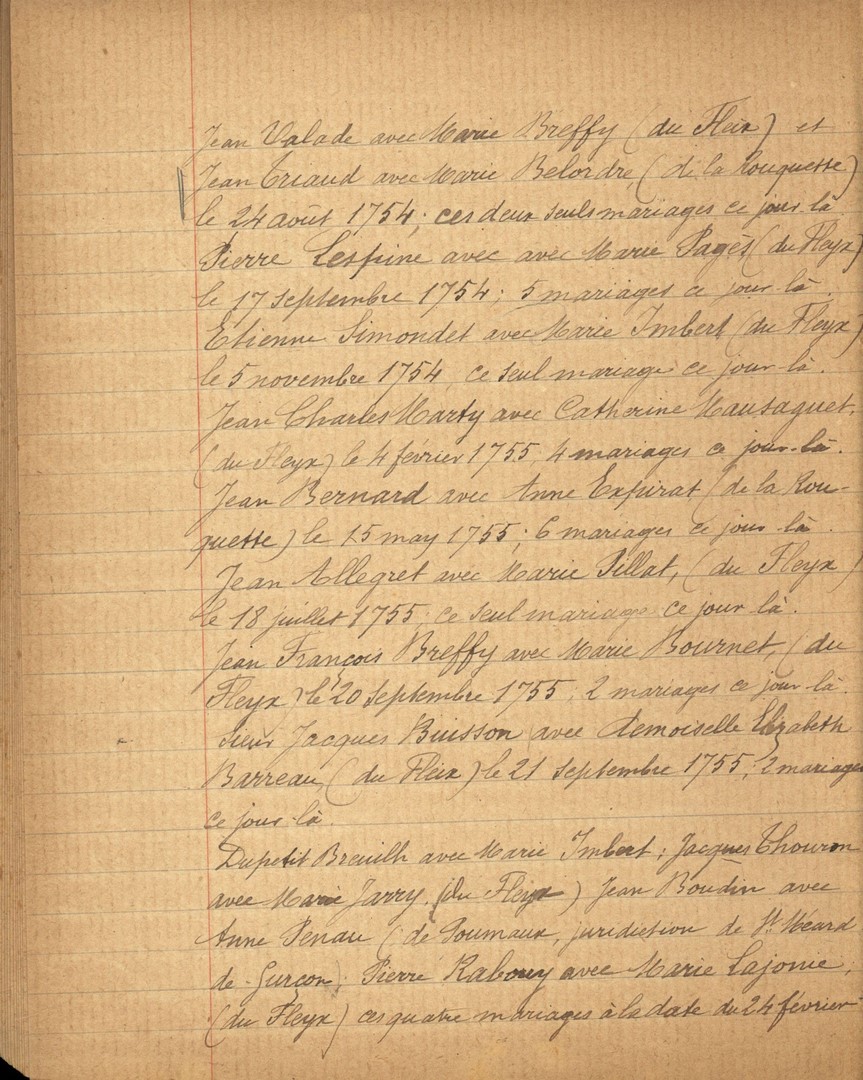 Jean Valade avec Marie Breffy (du Fleix) et
Jean Triaud avec Marie Belordre, (de la Rouquette)
le 24 août 1754; ces deux seuls mariages ce jour-là
Pierre Lespine avec avec Marie Pagès (du Fleyx)
le 17 septembre 1754; 5 mariages ce jour-là.
Etienne Simondet avec Marie Imbert (du Fleyx)
le 5 novembre 1754, ce seul mariage ce jour-là.
Jean Charles Marty avec Catherine Mausaguet,
(du Fleyx) le 4 février 1755, 4 mariages ce jour-là.
Jean Bernard avec Anne Expirat (de la Rou-
quette) le 15 may 1755; 6 mariages ce jour-là.
Jean Allegret avec Marie Pillat, (du Fleyx)
le 18 juillet 1755, ce seul mariage ce jour là.
Jean François Breffy avec Marie Bournet, (du
Fleyx) le 20 septembre 1755, 2 mariages ce jour-là.
sieur Jacques Buisson avec demoiselle Elizabeth
Barreau, (du Fleix) le 21 septembre 1755, 2 mariages
ce jour-là
Dupetit Breuilh avec Marie Imbert; Jacques Thouron
avec Marie Jarry, (du Fleyx) Jean Boudin avec
Anne Penau (de Goumaux, juridiction de St Méard
de-Gurçon); Pierre Rabouy avec Marie Lajonie,
(du Fleyx) ces quatre mariages à la date du 24 février